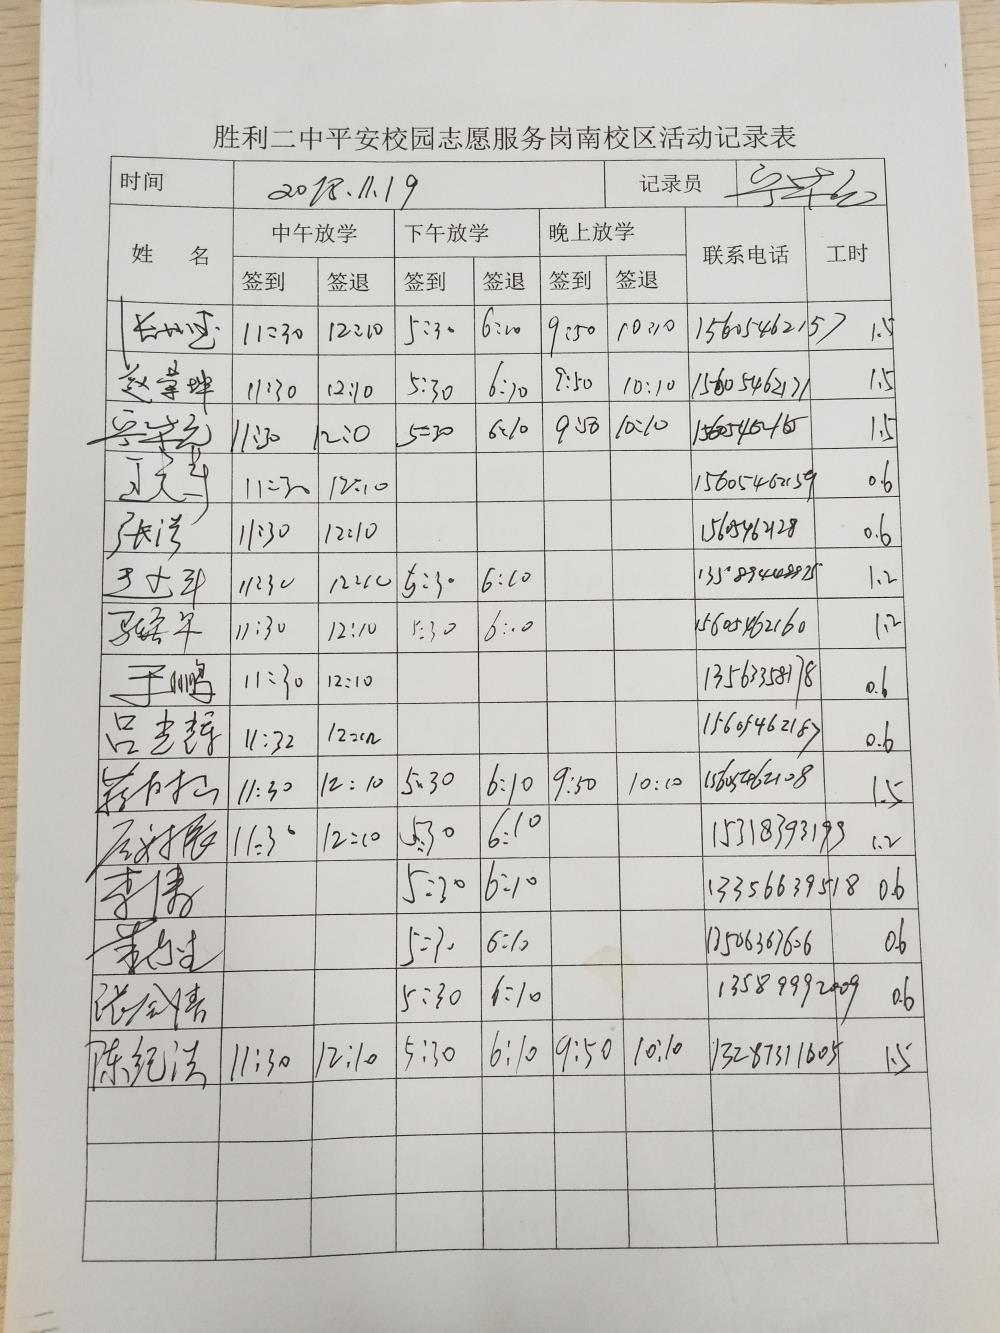 胜利二中平安校园志愿服务岗南校区活动记录表
时间 2018.11.19 记录员
姓 名 中午放学 下午放学 晚上放学 联系电话 工时
签到 签退 签到 签退 签到 签退
11:30 12:10 5:30 6:10 9:50 10:10 15605462157 1.5
11:30 12:10 5:30 6:10 9:50 10:10 15605462171 1.5
11:30 12:10 5:30 6:10 9:50 10:10 1.5
11:30 12:10 15605462159 0.6
张洪 11:30 12:10 15605462128 0.6
11:30 12:10 5:30 6:10 1.2
11:30 12:10 5:30 6:10 15605462160 1.2
于鹏 11:30 12:10 13563358178 0.6
吕 11:32 15605462187 0.6
11:30 12:10 5:30 6:10 9:50 10:10 15605462108 1.5
11:30 12:10 5:30 6:10 15318393199 1.2
李涛 5:30 6:10 13356639518 0.6
5:30 6:10 13506367606 0.6
5:30 6:10 13589992009 0.6
陈纪洪 11:30 12:10 5:30 6:10 9:50 10:10 13287311605 1.5